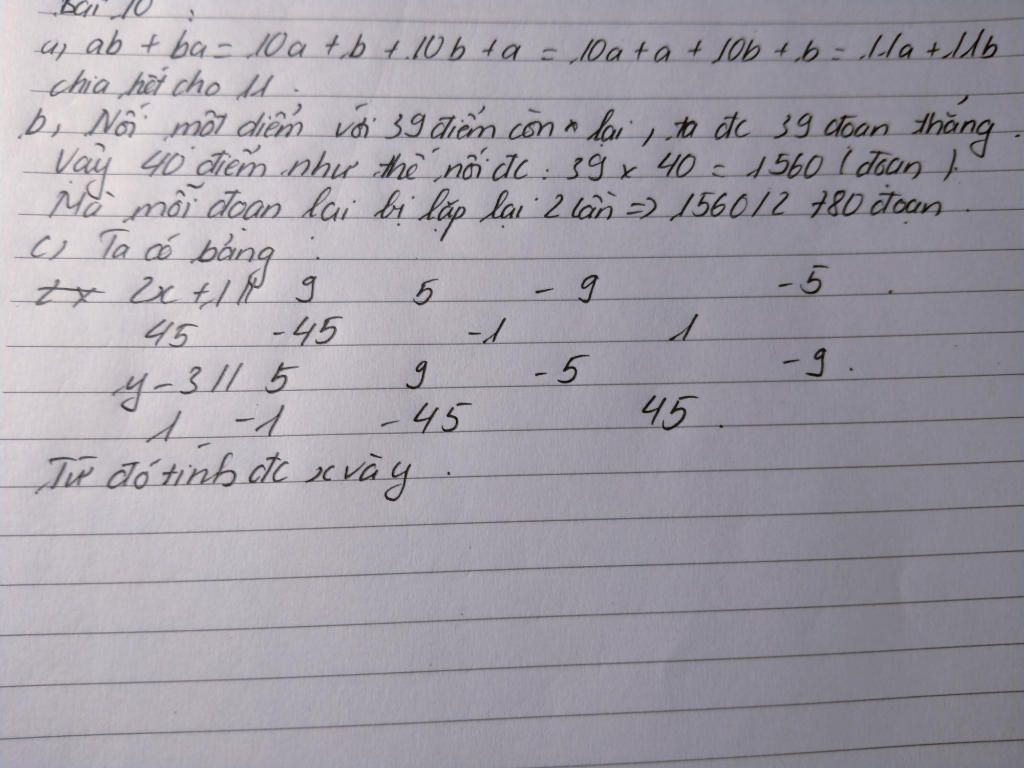 Bài 10 :
a, ab + ba = 10a + b + 10b + a = 10a + a + 10b + b = 11a + 11b
chia hết cho 11 .
b, Nối một điểm với 39 điểm còn lại, ta đc 39 đoạn thẳng .
Vậy 40 điểm như thế nối đc : 39 x 40 = 1560 ( đoạn ).
Mà mỗi đoạn lại bị lặp lại 2 lần => 1560/2 780 đoạn .
c, Ta có bảng :
2x + 1 // 9 5 - 9 - 5 .
45 - 45 - 1 1
y - 3 // 5 9 - 5 - 9 .
1 - 1 - 45 45 .
Từ đó tính đc x và y .